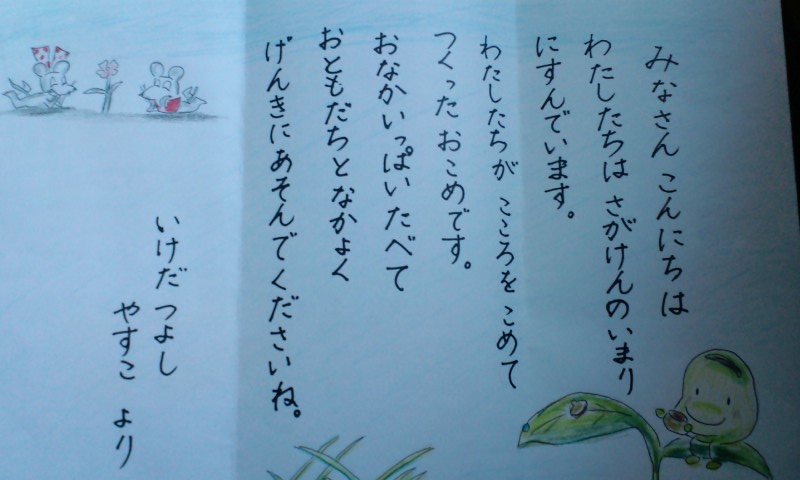 みなさん こんにちは
わたしたちは さがけんのいまり
にすんでいます。
わたしたちが こころを こめて
つくった おこめです。
おなかいっぱいたべて
おともだちとなかよく
げんきにあそんでくださいね。
いけだ つよし
やすこ より